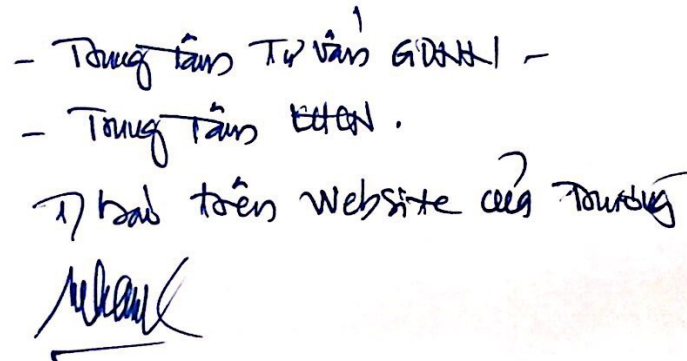 - Trung tâm Tư vấn GDNN -
- Trung Tâm
T/ báo trên Website của Trường